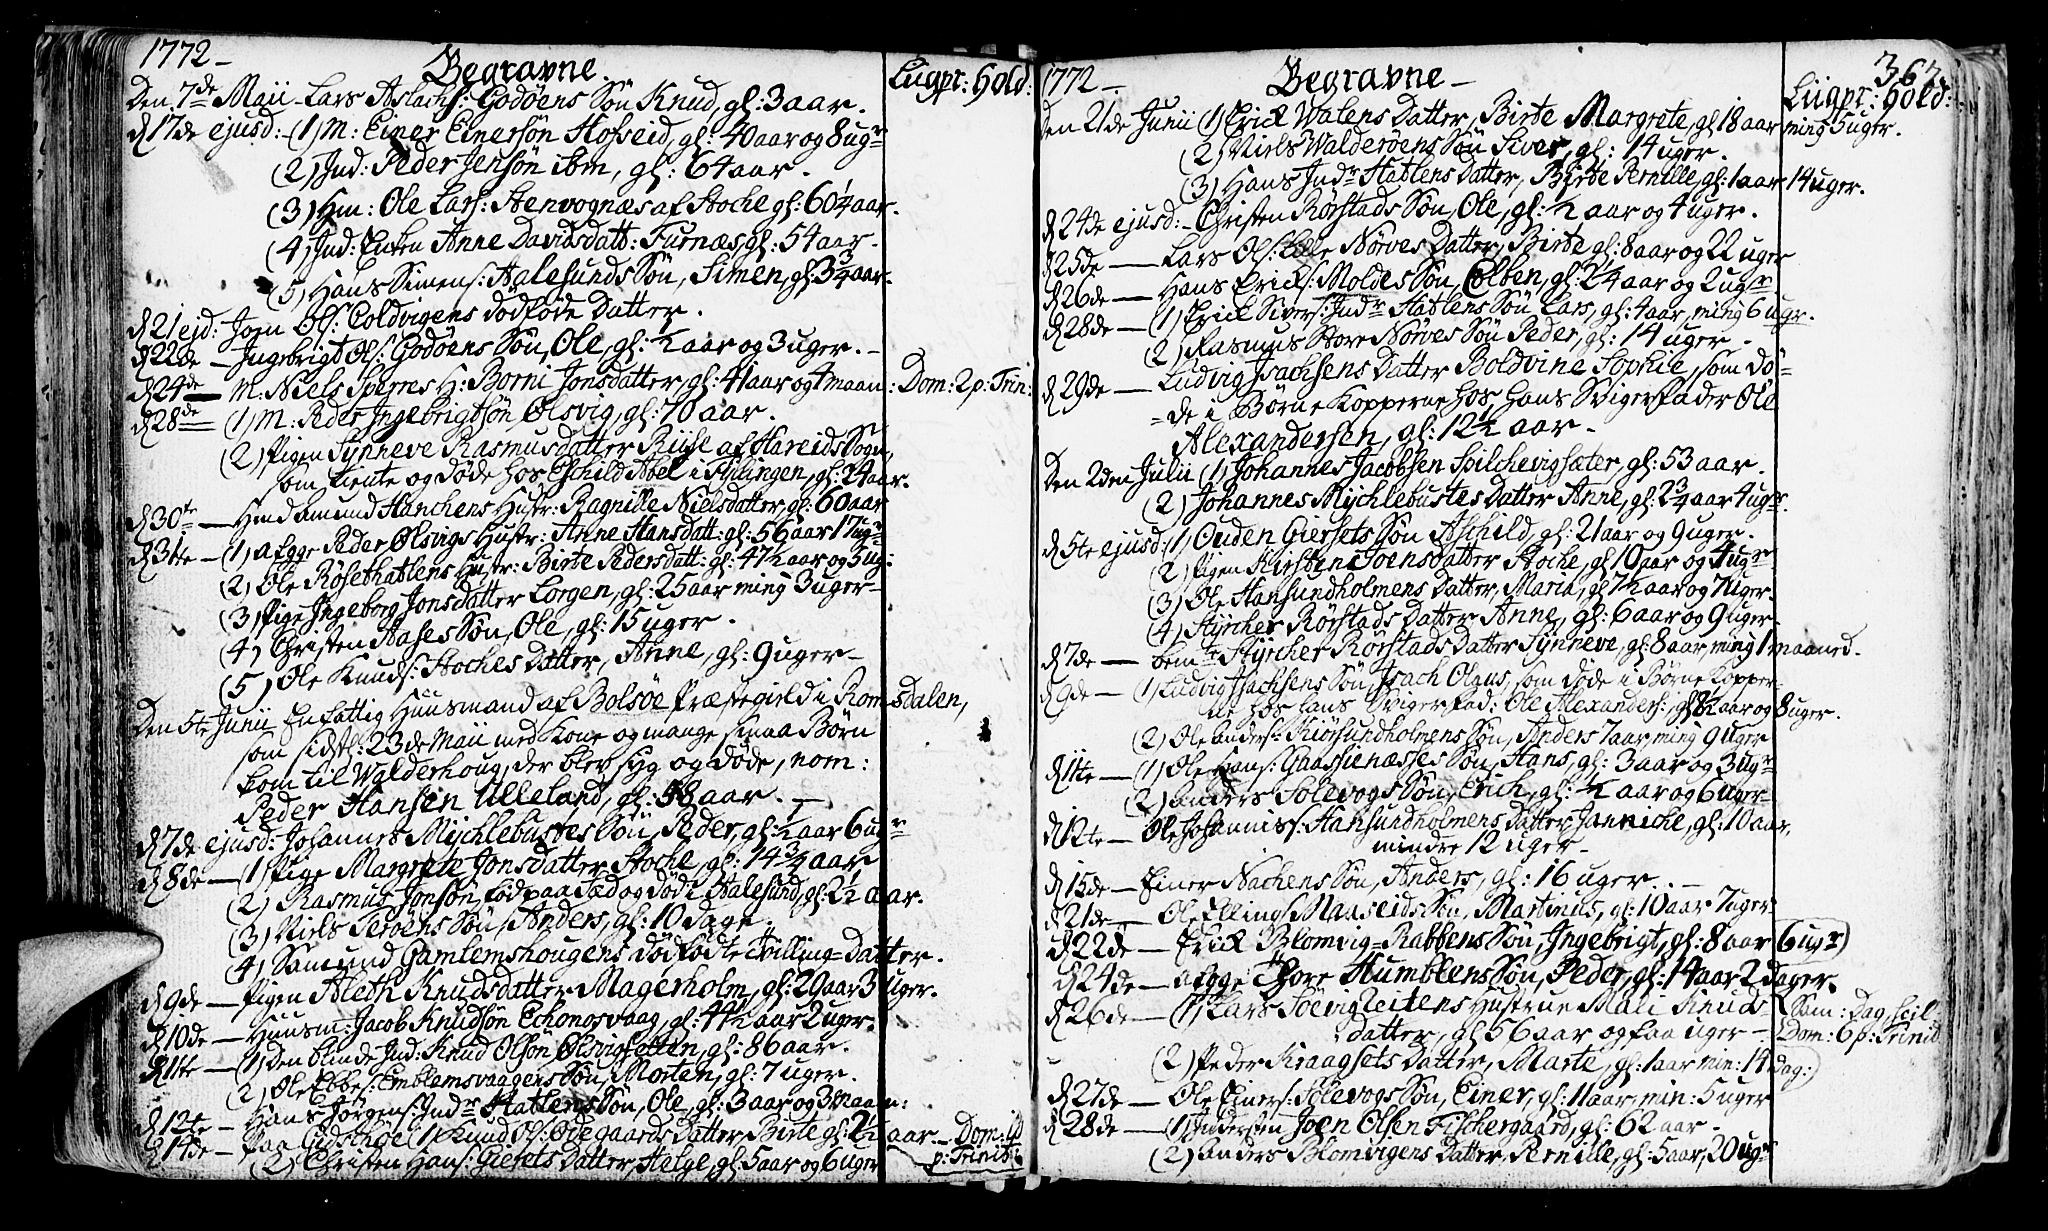 1772 -
Begravne.
Liigpr: Hold:
Den 7de Maii - Lars Aslachs: Godøens Søn Knud, gl: 3 aar.
d 17de ejusd: - (1) M: Einer Einersøn Hofseid, gl: 40 aar og 8 ugr
(2) Ind: Peder Jensøn ibm, gl: 64 aar.
(3) Hm: Ole Lars: Stenvognæs af Stoche gl: 60 1/4 aar.
(4) Ind: Enken Anne Davidsdatt: Furnæs gl: 54 aar.
(5) Hans Simens: Aalesunds Søn, Simen, gl: 3 3/4 aar.
d 21 ejd: Joen Ols: Coldvigens dødføde Datter.
d 22de - Ingebrigt Ols: Godøens Søn, Ole, gl: 1/2 aar og 3 uger. -
d 24de - M: Niels Sperres H: Borni Jonsdatter, gl: 41 aar og 4 maan: Dom: 2 p: Trin:
d 28de (1) M: Peder Ingebrigtsøn Olsvig, gl: 70 aar.
(2) Pigen Synneve Rasmusdatter Riise af Hareids Sogn,
som tiente og døde hos Eschild Abel i Flylingen, gl: 24 aar.
d 30te - Hmd Amund Hanchens Hustr: Ragnilde Nielsdatter, gl: 60 aar
d 31te - (1) afgge Peder Olsvigs Hustr: Anne Hansdatt: gl: 56 aar 17 ugr
(2) Ole Røsethatlens Hustr: Birte Pedersdatt: gl: 47 1/2 aar og 3 ug:
(3) Pige Ingeborg Jonsdatter Lorgen, gl: 25 aar ming 3 uger -
(4) Christen Aases Søn, Ole, gl: 15 uger.
(5) Ole Knuds: Stoches Datter, Anne, gl: 9 uger -
Den 5te Junii En fattig Huusmand af Bolsøe Præstegield i Romsdalen,
som sidstl: 23de Maii med Kone og mange smaa Børn
kom til Walderhoug, der blev syg og døde, nom:
Peder Hansen Ulleland, gl: 58 aar. -
d 7de ejusd: Johannes Mychlebustes Søn, Peder, gl: 1/2 aar 6 ugr
d 8de - (1) Pige Margrete Jonsdatter Stoche, gl: 14 3/4 aar
(2) Rasmus Jonsøn, fød paa Sæd og død i Aalesund, gl: 2 1/2 aar.
(3) Niels Terøens Søn, Anders, gl: 10 dage.
(4) Samund Gamlemshougens dødfødte Tvilling=Datter.
d 9de - Pigen Aleth Knudsdatter Magerholm, gl: 29 aar 3 uger.
d 10de - Huusm: Jacob Knudsøn Echonosvaag, gl: 44 1/2 aar 2 uger.
d 11te - (1) Den blinde Ind: Knud Olsøn Olsvigsetten, gl: 86 aar.
(2) Ole Ebbes: Emblemsvaagens Søn, Morten, gl: 7 uger.
d 12te - Hans Jørgens: Indr Hatlens Søn, Ole, gl: 3 aar og 3 maan:
d 14de - Paa Gidskøe (1) Knud Ols: Ødegaards Datter, Birte gl: 2 1/2 aar - Dom: 4d
(2) Christen Hans: Giesets Datter, Helge, gl: 5 aar og 6 uger p: Trinit:
1772 -
Begravne -
367.
Liigpr: Hold:
Den 21de Junii (1) Erick Watens Datter, Birte Margrete, gl 18 aar ming 5 uger.
(2) Niels Walderøens Søn Siver, gl: 14 uger.
(3) Hans Indr Hatlens Datter, Birte Pernille, gl: 1 aar 14 uger.
d 24de ejusd: - Christen Rørstads Søn, Ole, gl: 1/2 aar og 4 uger.
d 25de - Lars Ols: Nørves Datter, Birte gl: 8 aar og 22 uger
d 26de - Hans Ericks: Moldes Søn, Colben, gl: 2 1/4 aar og 2 ugr
d 28de - (1) Erick Sivers: Indr Hatlens Søn Lars, gl: 4 aar, ming 6 ugr.
(2) Rasmus Store Nørves Søn Peder, gl: 14 uger.
d 29de - Ludvig Isachsens Datter Boldvine Sophie, som dø=
=de i Børne Kopperne hos Hans Svigerfader Ole
Alexandersen, gl: 12 1/2 aar.
Den 2den Julii (1) Johannes Jacobsen Spilchevigsæter, gl: 53 aar.
(2) Johannes Mychlebustes Datter Anne, gl: 2 3/4 aar 4 ugr.
d 5te ejusd: (1) Ouden Giersets Søn Aschild, gl: 21 aar og 9 uger.
(2) Pigen Kirsten Joensdatter Stoche, gl 10 aar og 4 ugr
(3) Ole Hansundholmens Datter, Maria, gl 7 1/2 aar og 7 uger.
(4) Styrcher Rørstads Datter Anne, gl: 6 aar og 9 uger -
d 7de - bemte Styrcher Rørstads Datter Synneve, gl: 8 aar, ming 1 maaned.
d 9de - (1) Ludvig Isachsens Søn, Isach Olaus, som døde i Børne Kopper-
ne hos hans Svigerfad: Ole Alexanders:, gl 8 1/2 aar og 8 uger.
(2) Ole Anders: Kiørsundholmens Søn, Anders 7 aar, ming 9 uger
d 11te - (1) Ole Hans: Gaassienæsses Søn, Hans, gl: 3 aar og 3 ugr
(2) Anders Solevogs Søn, Erich, gl: 1/2 aar og 6 uger -
d 12te - Ole Johannis: Hansundholmens Datter Jannicke, gl: 10 aar,
mindre 12 uger -
d 15de - Einer Nachens Søn, Anders, gl: 16 uger. -
d 21de - Ole Ellings: Maaseids Søn, Martinus, gl: 10 aar 7 uger
d 22de - Erick Blomvig=Rabbens Søn, Ingebrigt, gl: 8 aar 6 ugr)
d 24de - afgge Thore Humblens Søn, Peder, gl: 14 aar 2 Dager.
d 26de - (1) Lars Søevigleitens Hustrue Mali Knuds-
datter, gl 56 aar og faa uger - Sam: Dag, scil: Dom: 6 p: Trinit
(2) Peder Kraagsets Datter, Marte, gl: 1 aar min: 14 Dag:)
d 27de - Ole Einers: Solevogs Søn, Einer, gl: 11 aar, min: 5 uger
d 28de - (1) Indersten Joen Olsen Fischergaard, gl: 62 aar.
(2) Anders Blomvigens Datter, Pernille, gl: 5 aar, 20 ugr